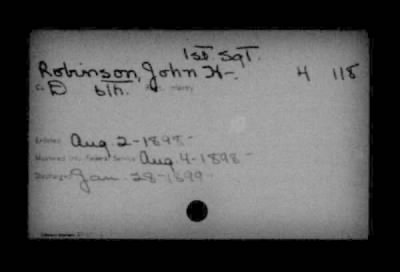 1st Sgt.
Robinson, John H. 4 118
Co. D 6th.
Enlisted Aug. 2-1898-
Mustered into Federal Service Aug 4-1898-
Discharged Jan. 28-1899-